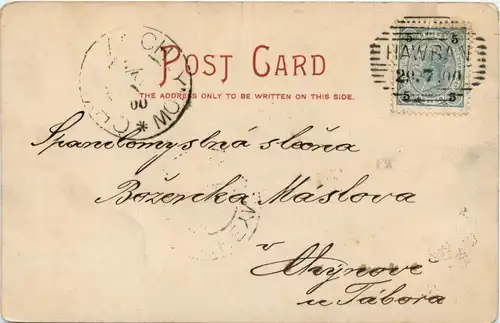 POST CARD
THE ADDRESS ONLY TO BE WRITTEN ON THIS SIDE.
5 5
HAWRAN
29 7 00
5 5
Spanilomyslná slečna
Boženka Máslova
v
u Tábora